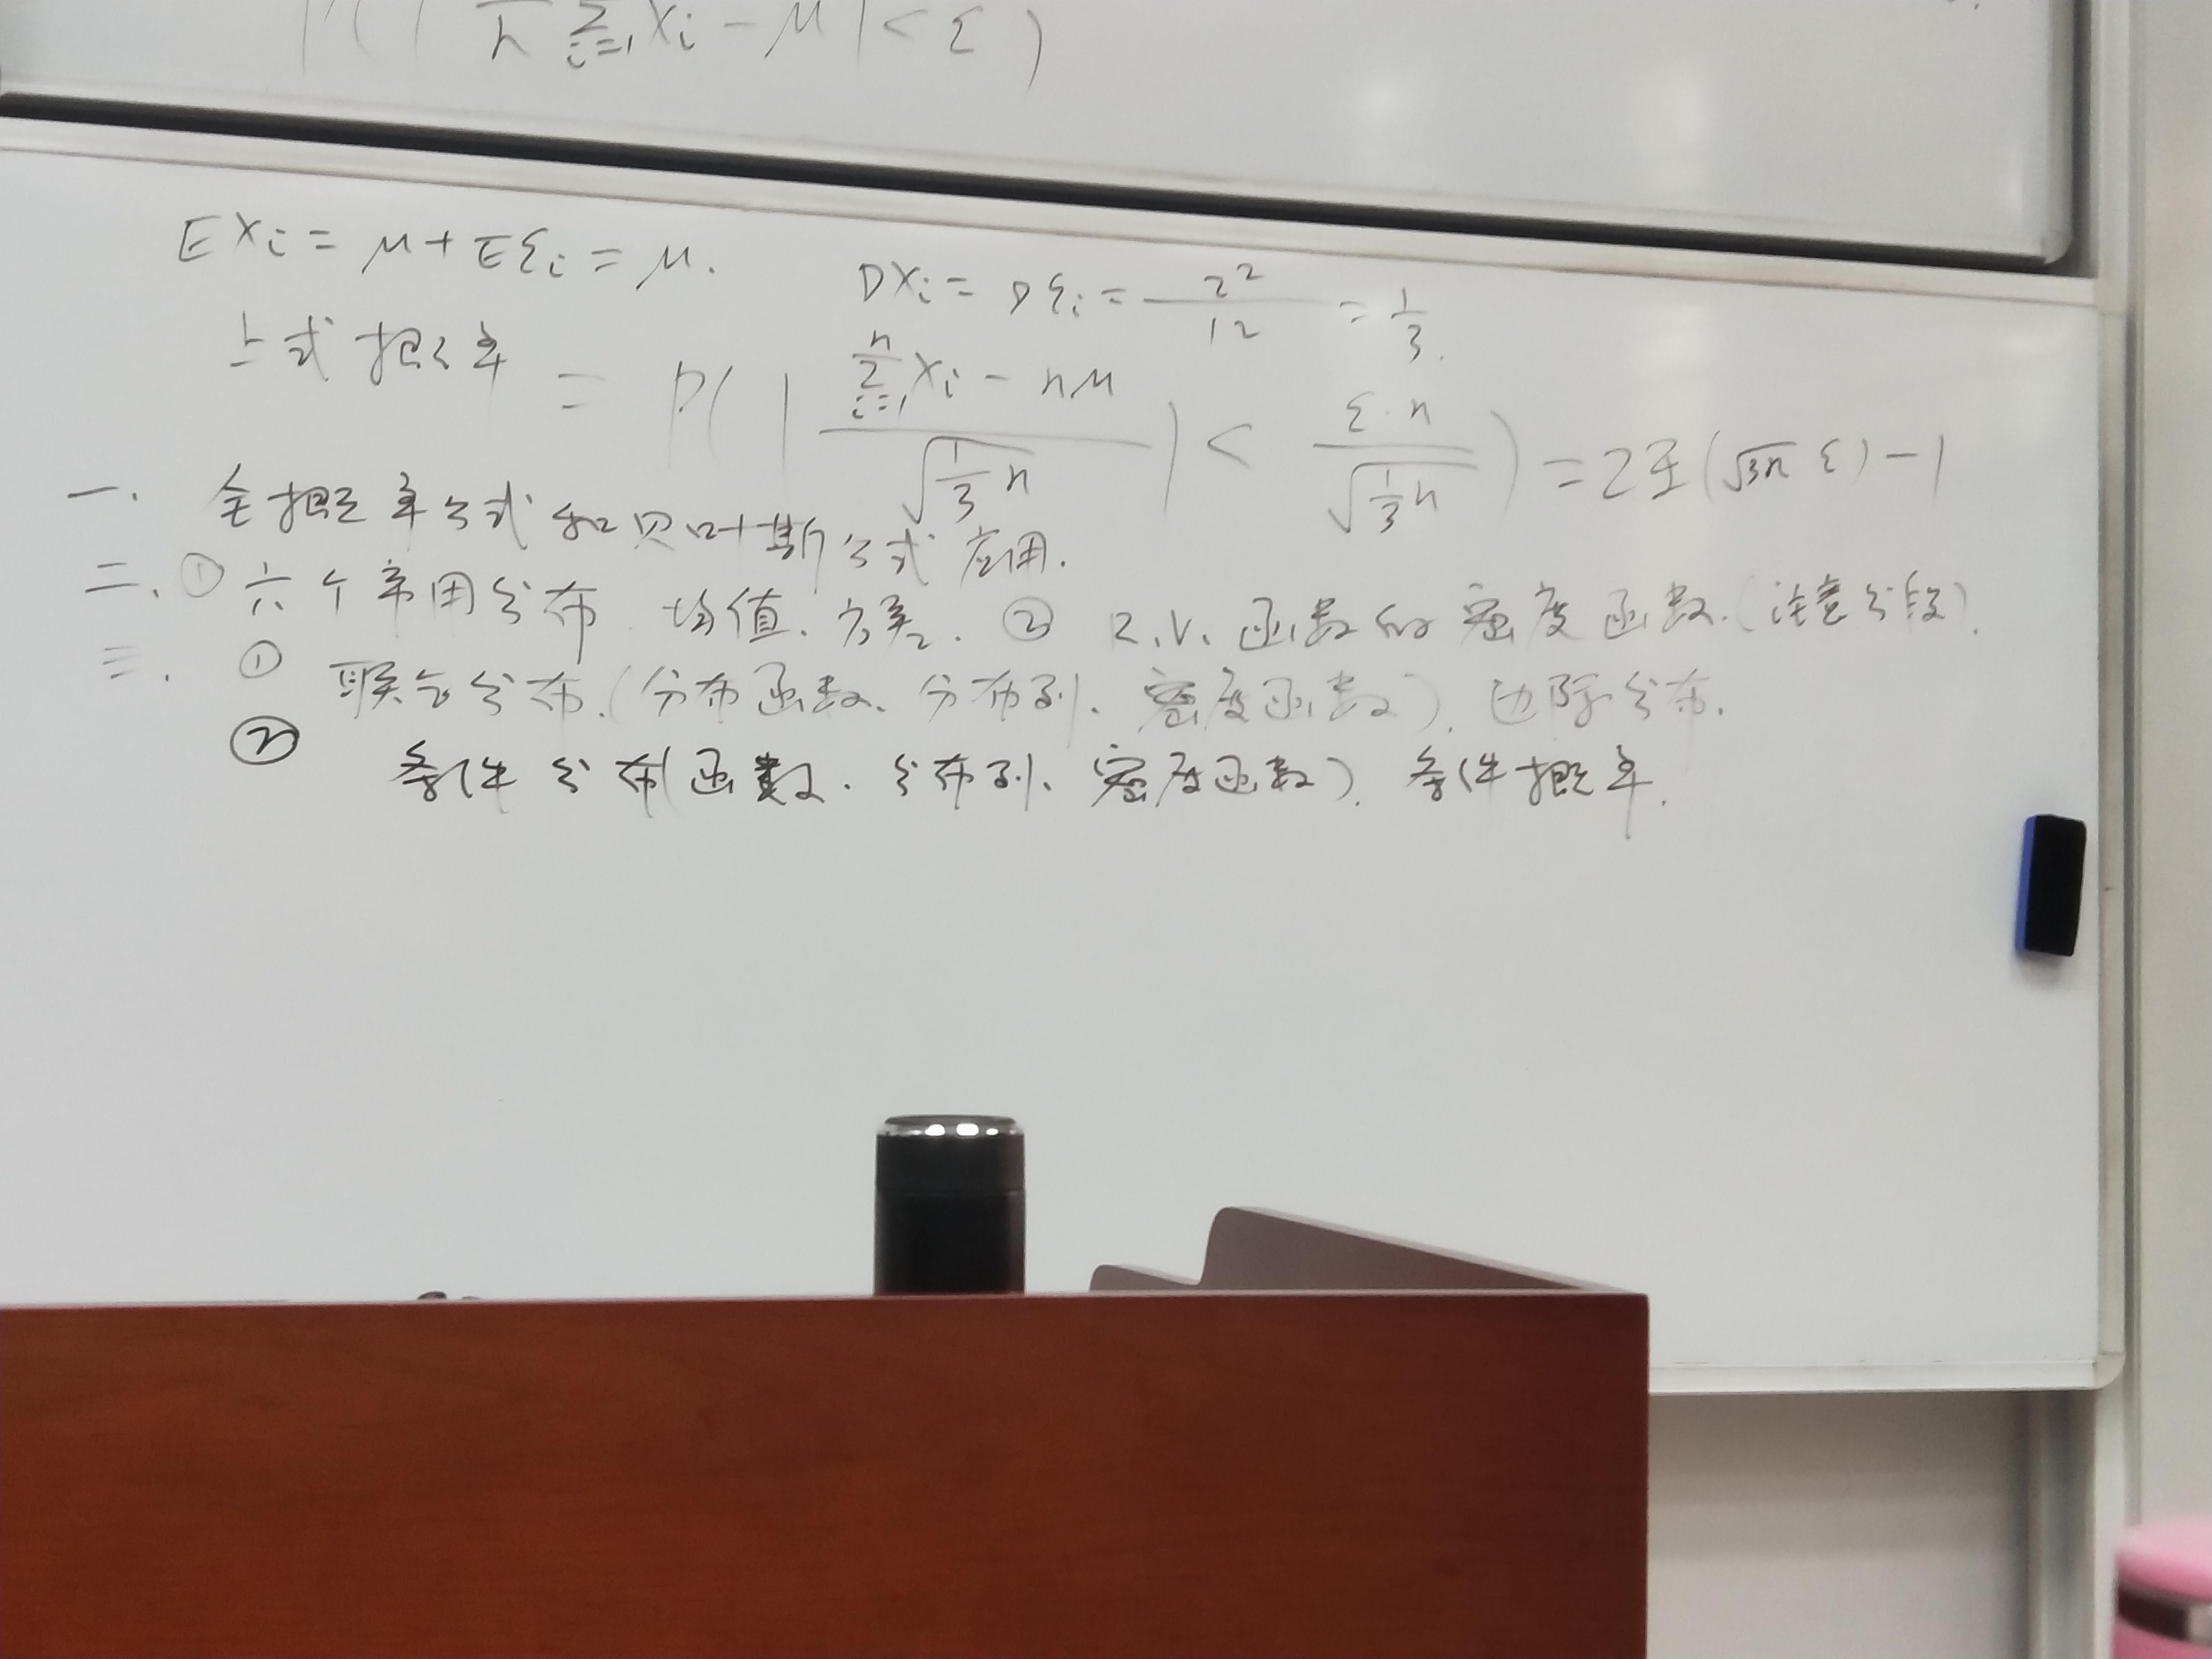 P(|1/n ∑_{i=1} Xi - μ| < ε)
EXi = μ + Eεi = μ.
DXi = Dεi = 2²/12 = 1/3.
上式概率 = P(|(∑_{i=1}^{n} Xi - nμ)/√(1/3 n)| < ε·n/√(1/3 n)) = 2Φ(√3n ε) - 1
一. 全概率公式和贝叶斯公式应用.
二. ① 六个常用分布 均值、方差. ② R.V. 函数的密度函数.(注意分段).
三. ① 联合分布.(分布函数、分布列、密度函数). 边际分布.
② 条件分布(函数、分布列、密度函数). 条件概率.